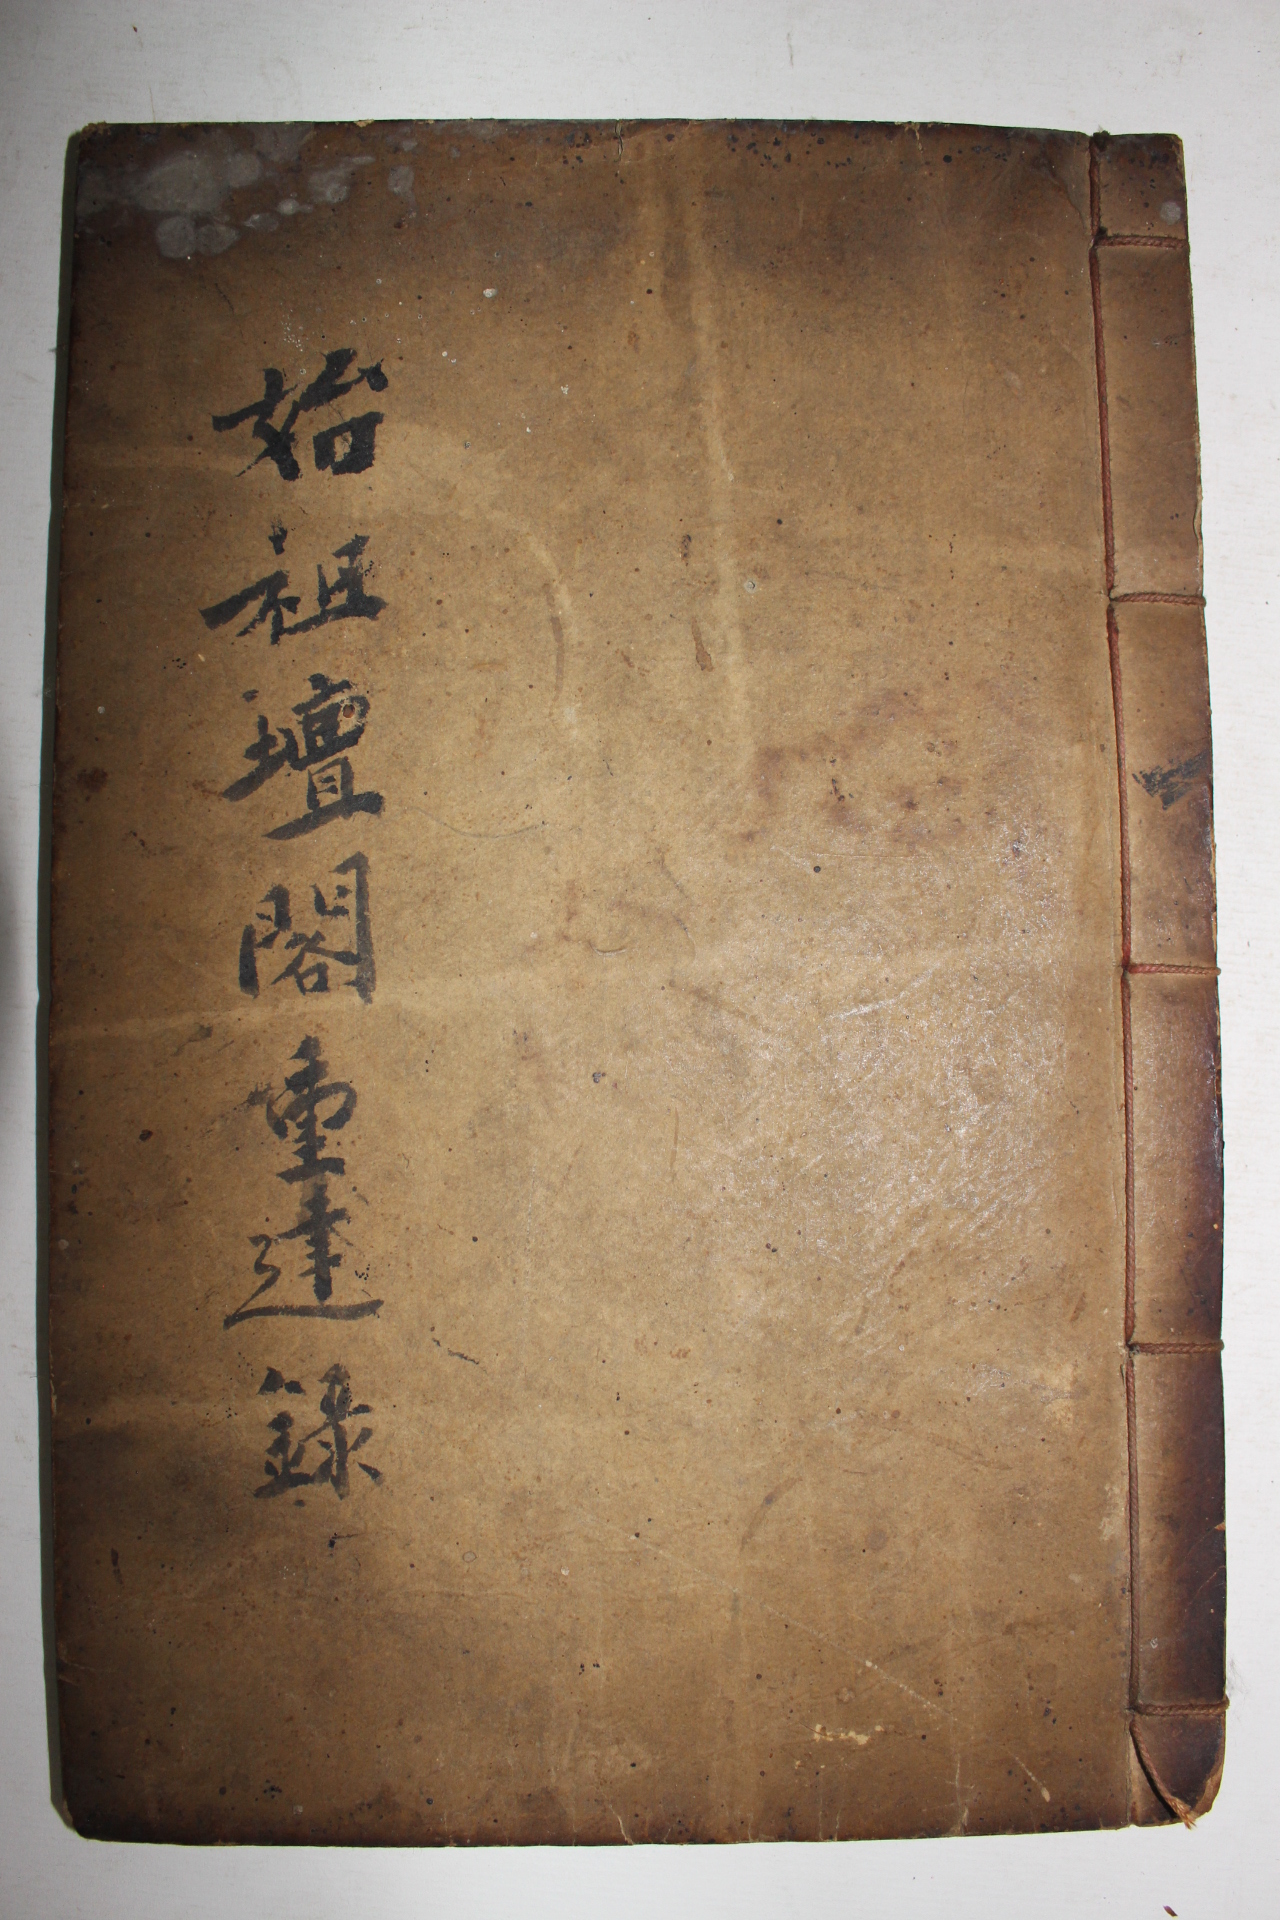 始祖壇閣重建錄